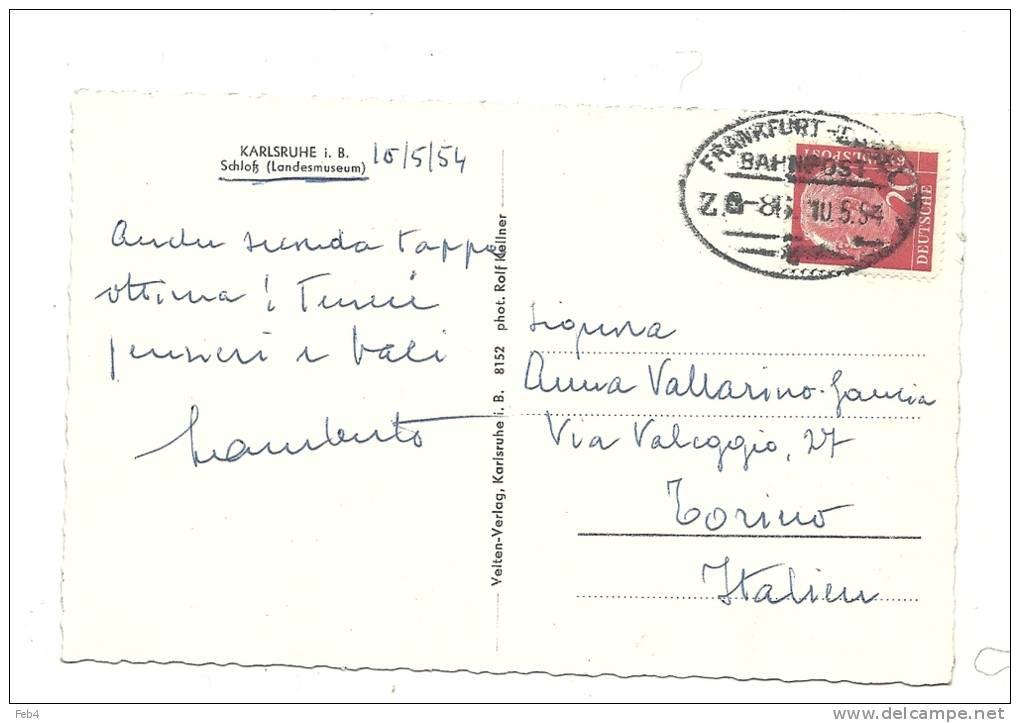 KARLSRUHE i. B.
Schloß (Landesmuseum)
10/5/54
Anche seconda tappa
ottima! Teneri
pensieri e baci
Lamberto
Velten-Verlag, Karlsruhe i. B. 8152 phot. Rolf Kellner
FRANKFURT-
BAHNPOST
10.5.54
20
DEUTSCHE
BUNDESPOST
Signora
Anna Vallarino-Gancia
Via Valeggio, 27
Torino
Italien
Feb4
www.delcampe.net